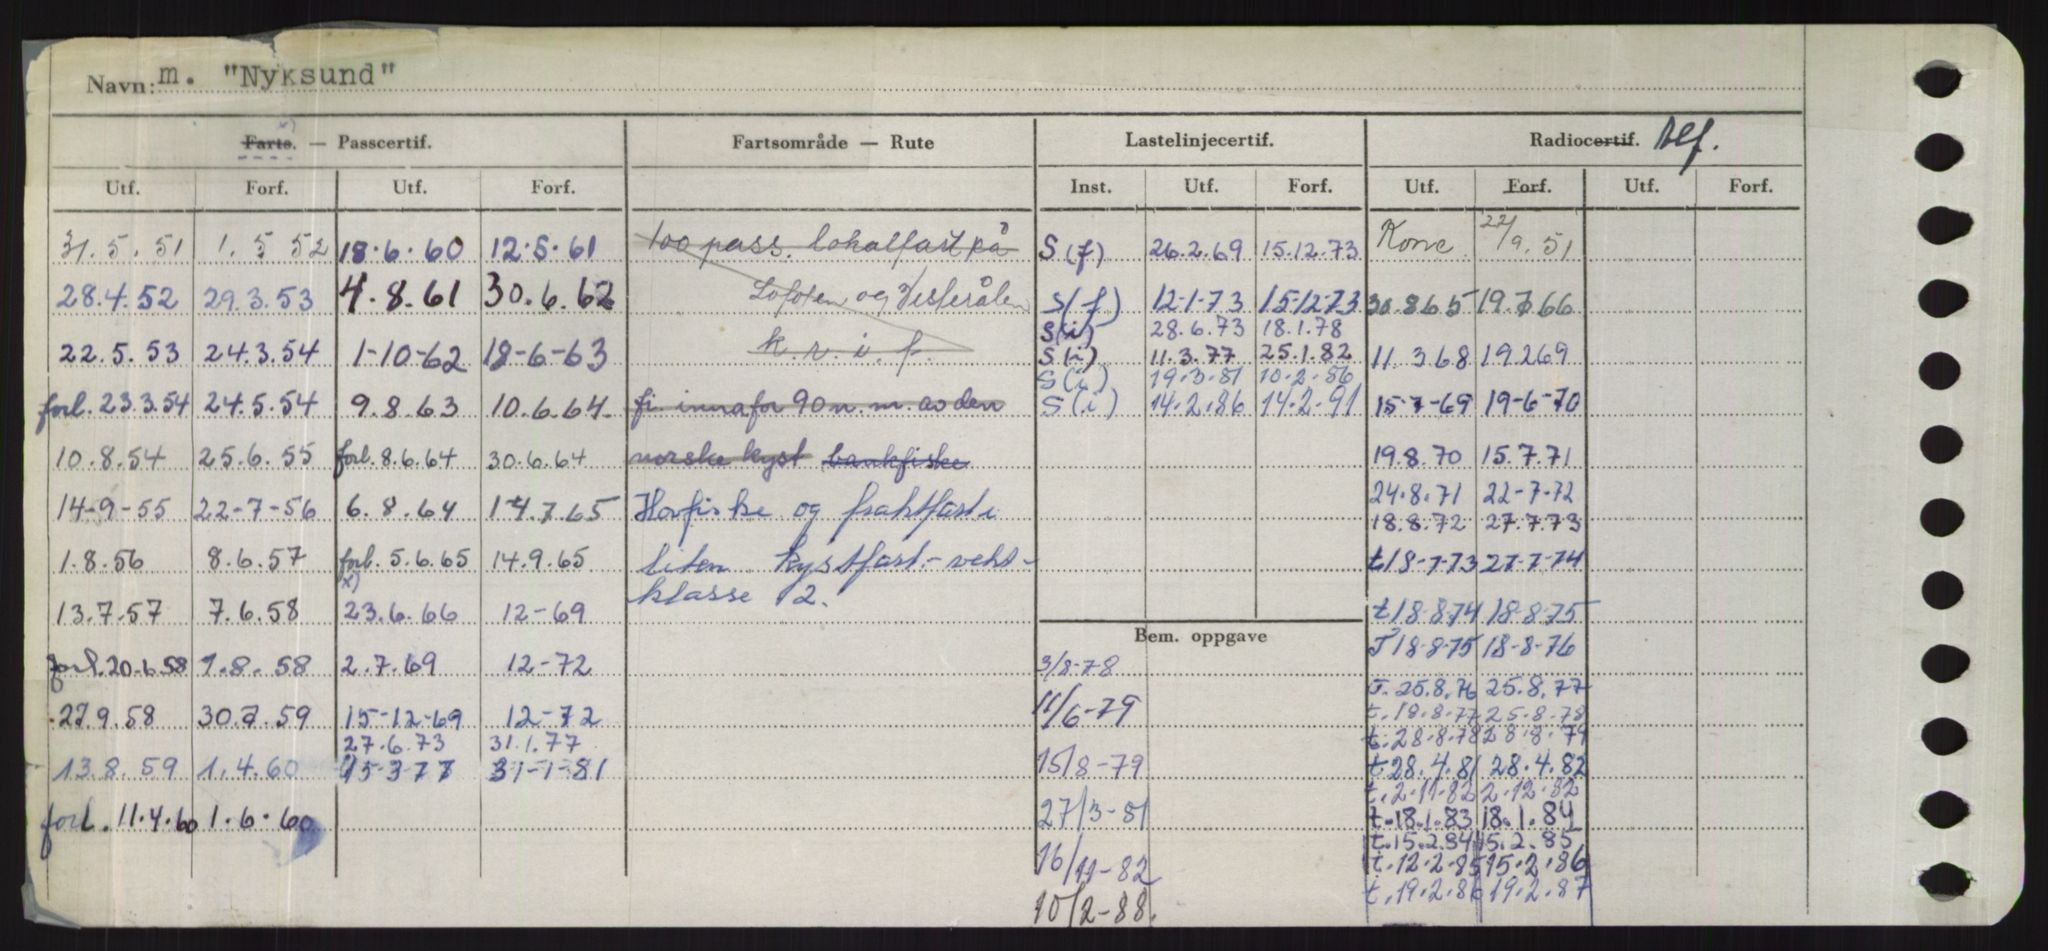 Navn: m. "Nyksund"
Farts. — Passcertif. Fartsområde — Rute Lastelinjecertif. Radiocertif. tlf.
Utf. Forf. Utf. Forf. Inst. Utf. Forf. Utf. Forf. Utf. Forf.
31.5.51 1.5 52 18.6.60 12.5.61 100 pass. lokalfart på S(f) 26.2.69 15.12.73 Konc 22/9.51
28.4.52 29.3.53 4.8.61 30.6.62 Lofoten og Vesterålen S(f) 12-1-73 15-12-73 30.8.65 19.7.66
S(i) 28.6.73 18.1.78
22.5.53 24.3.54 1-10-62 18-6-63 k.r.i.f. S(i) 11.3.77 25.1.82 11 3 68 19.2.69
S(i) 19.3.81 10.2.86
forl. 23.3.54 24.5.54 9.8.63 10.6.64. fi. innafor 90 n.m. av den S(i) 14.2.86 14.2.91 15-7-69 19-6-70
10.8.54 25.6.55 forl. 8.6.64 30.6.64 norske kyst bankfiske 19.8.70 15.7.71
24.8.71 22-7-72
14-9-55 22-7-56 6.8.64 14.7.65 Havfiske og fraktfart i 18.8.72 27.7.73
1.8.56 8.6.57 forl. 5.6.65 14.9.65 liten kystfart - vekt- t18-7-73 27-7-74
x) klasse 2.
13.7.57 7.6.58 23.6.66 12-69 t18-8-74 18-8-75
Bem. oppgave T18-8-75 18-8-76
forl. 20.6.58 1.8.58 2.7.69 12-72 3/8-78
T. 25.8.76 25.8.77
27.9.58 30.7.59 15-12-69 12-72 11/6-79 t. 18.8.77 25.8.78
27.6.73 31.1.77 t. 28.8.78 28.8.79
13.8.59 1.4.60 15-3-77 31-1-81 15/8-79 t28.4.81 28.4.82
t. 2.11.82 2.12.82
forl. 11.4.60 1.6.60 27/3-81 t.18.1.83 18.1.84
t.15.2.84 15.2.85
16/11-82 t.12.2.85 15.2.86
t.19.2.86 19.2.87
10/2-88.